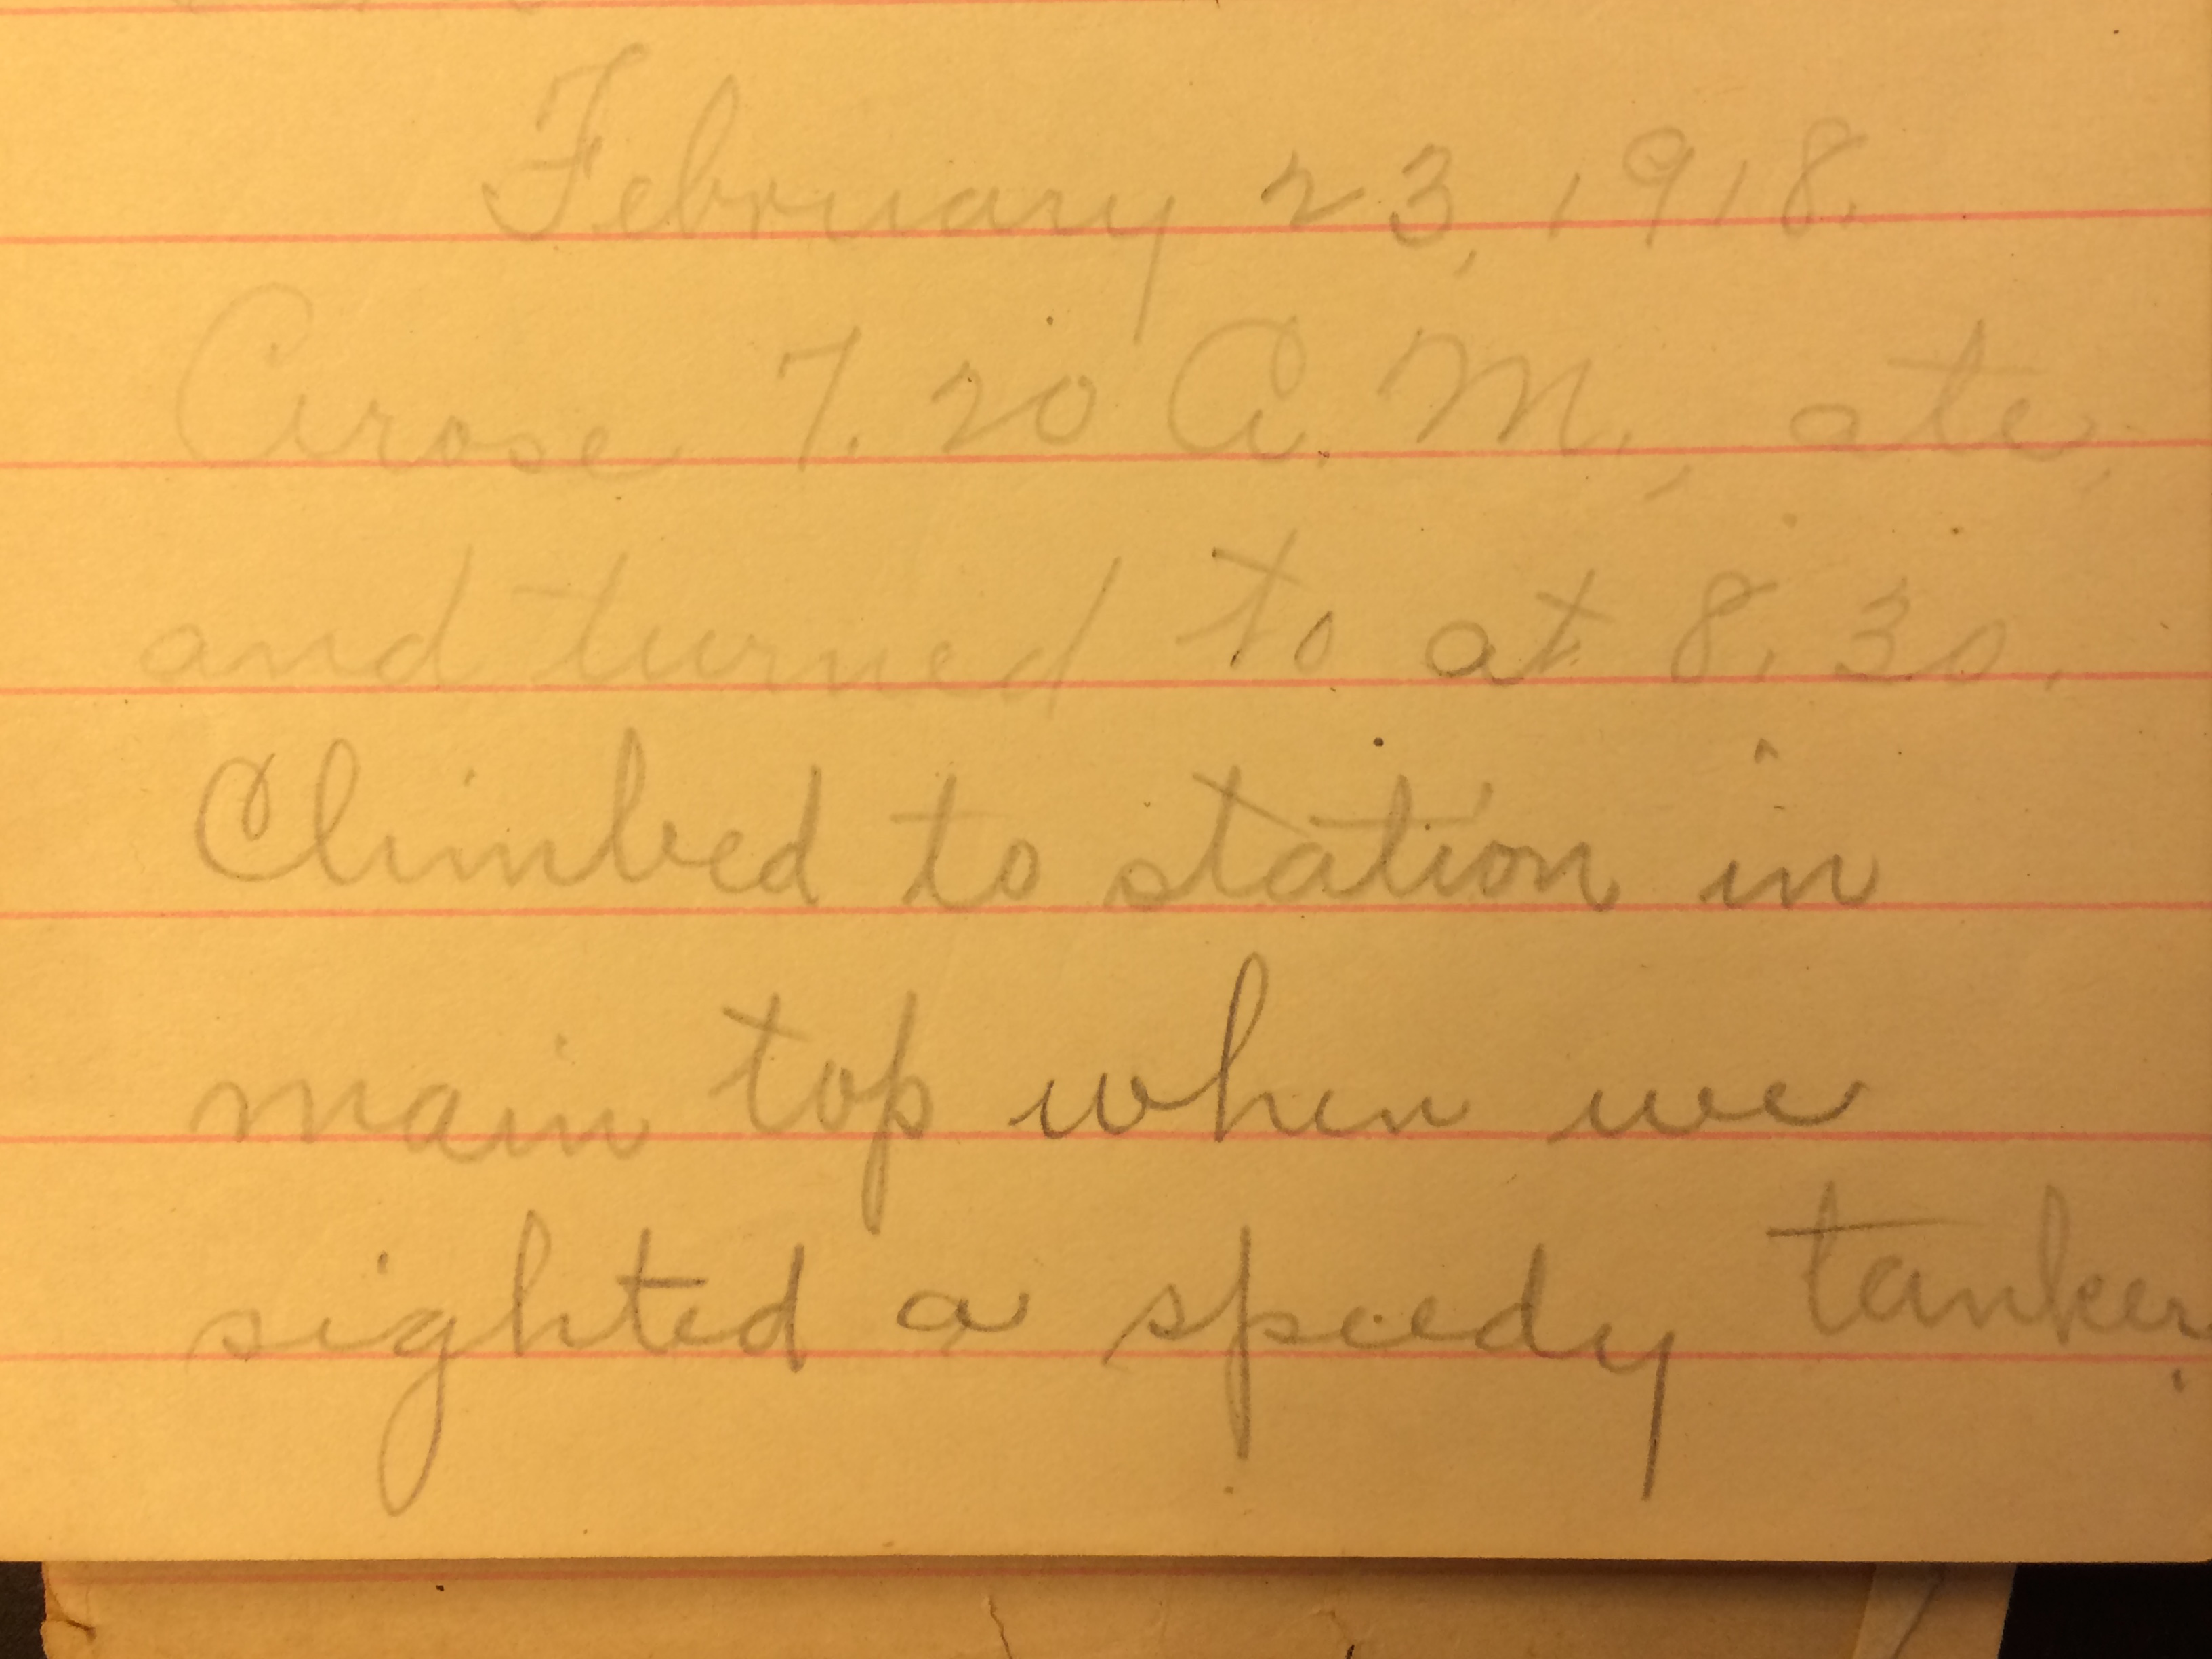 February 23, 1918.
Arose 7.20 A.M., ate,
and turned to at 8.30.
Climbed to station in
main top when we
sighted a speedy tanker.